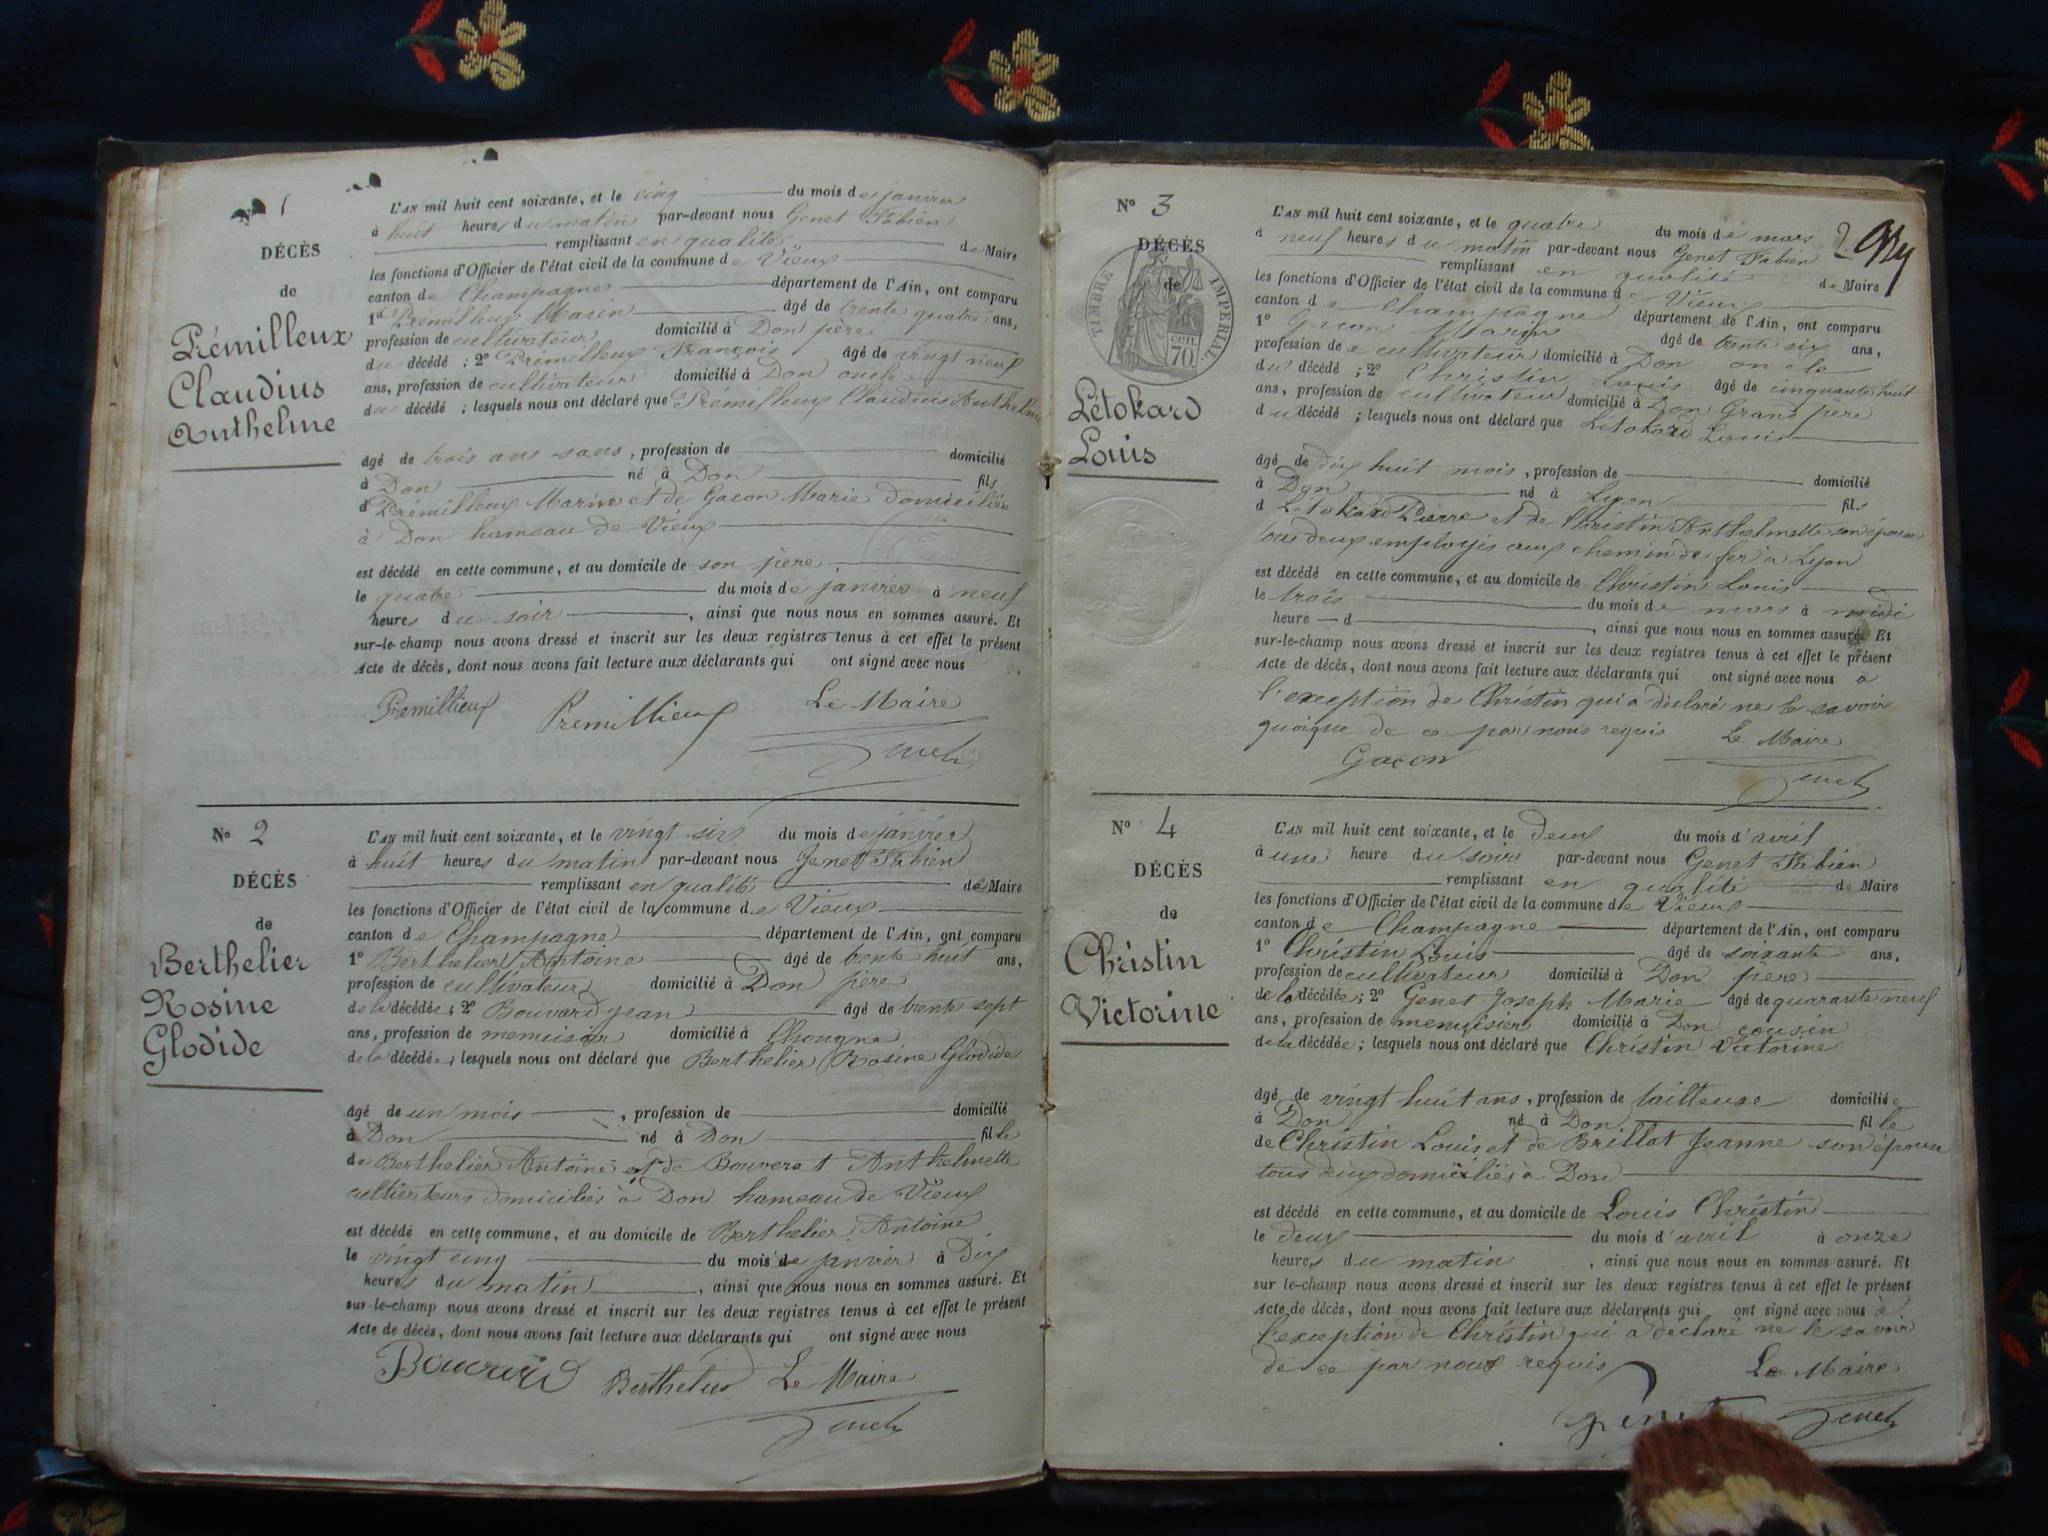 No 1
DÉCÈS
de
Prémilleux
Claudius
Anthelme
L'AN mil huit cent soixante, et le cinq du mois de janvier
à huit heures du matin par-devant nous Genet Fabien
remplissant en qualité de Maire
les fonctions d'Officier de l'état civil de la commune de Vieux
canton de Champagne département de l'Ain, ont comparu
1° Prémilleux Marin âgé de trente quatre ans,
profession de cultivateur domicilié à Don père
du décédé ; 2° Prémilleux François âgé de vingt neuf
ans, profession de cultivateur domicilié à Don oncle
du décédé ; lesquels nous ont déclaré que Prémilleux Claudius Anthelme
âgé de trois ans sans, profession de domicilié
à Don né à Don fils
d Prémilleux Marin et de Gacon Marie domiciliés
à Don hameau de Vieux
est décédé en cette commune, et au domicile de son père
le quatre du mois de janvier à neuf
heures du soir, ainsi que nous nous en sommes assuré. Et
sur-le-champ nous avons dressé et inscrit sur les deux registres tenus à cet effet le présent
Acte de décès, dont nous avons fait lecture aux déclarants qui ont signé avec nous
Premillieux Premillieux Le Maire
Genet
No 2
DÉCÈS
de
Berthelier
Rosine
Glodide
L'AN mil huit cent soixante, et le vingt six du mois de janvier
à huit heures du matin par-devant nous Genet Fabien
remplissant en qualité de Maire
les fonctions d'Officier de l'état civil de la commune de Vieux
canton de Champagne département de l'Ain, ont comparu
1° Berthelier Antoine âgé de trente huit ans,
profession de cultivateur domicilié à Don père
de la décédée ; 2° Bouvard jean âgé de trente sept
ans, profession de menuisier domicilié à Chougne
de la décédée ; lesquels nous ont déclaré que Berthelier Rosine Glodide
âgé de un mois, profession de domicilié
à Don né à Don fille
de Berthelier Antoine et de Bouveret Anthelmette
cultivateurs domiciliés à Don hameau de Vieux
est décédé en cette commune, et au domicile de Berthelier Antoine
le vingt cinq du mois de janvier à Dix
heures du matin, ainsi que nous nous en sommes assuré. Et
sur-le-champ nous avons dressé et inscrit sur les deux registres tenus à cet effet le présent
Acte de décès, dont nous avons fait lecture aux déclarants qui ont signé avec nous
Bouvard Berthelier Le Maire
Genet
No 3
DÉCÈS
de
TIMBRE IMPERIAL
cen.
70.
Létokard
Louis
L'AN mil huit cent soixante, et le quatre du mois de mars
à neuf heures du matin par-devant nous Genet Fabien
remplissant en qualité de Maire
les fonctions d'Officier de l'état civil de la commune de Vieux
canton de Champagne département de l'Ain, ont comparu
1° Gacon Marin âgé de trente six ans,
profession de cultivateur domicilié à Don oncle
du décédé ; 2° Christin Louis âgé de cinquante huit
ans, profession de cultivateur domicilié à Don Grand père
du décédé ; lesquels nous ont déclaré que Létokard Louis
âgé de dix huit mois, profession de domicilié
à Don né à Lyon fils
d Létokard Pierre et de Christin Anthelmette son épouse
tous deux employés aux chemin de fer à Lyon
est décédé en cette commune, et au domicile de Christin Louis
le trois du mois de mars à midi
heure d, ainsi que nous nous en sommes assuré. Et
sur-le-champ nous avons dressé et inscrit sur les deux registres tenus à cet effet le présent
Acte de décès, dont nous avons fait lecture aux déclarants qui ont signé avec nous à
l'exception de Christin qui a déclaré ne le savoir
quoique de ce par nous requis Le Maire
Gacon Genet
No 4
DÉCÈS
de
Christin
Victorine
L'AN mil huit cent soixante, et le deux du mois d'avril
à une heure du soir par-devant nous Genet Fabien
remplissant en qualité de Maire
les fonctions d'Officier de l'état civil de la commune de Vieux
canton de Champagne département de l'Ain, ont comparu
1° Christin Louis âgé de soixante ans,
profession de cultivateur domicilié à Don père
de la décédée ; 2° Genet Joseph Marie âgé de quarante neuf
ans, profession de menuisier domicilié à Don cousin
de la décédée ; lesquels nous ont déclaré que Christin Victorine
âgé de vingt huit ans, profession de tailleuse domiciliée
à Don né à Don fille
de Christin Louis et de Brillat Jeanne son épouse
tous deux domiciliés à Don
est décédé en cette commune, et au domicile de Louis Christin
le deux du mois d'avril à onze
heures du matin, ainsi que nous nous en sommes assuré. Et
sur le-champ nous avons dressé et inscrit sur les deux registres tenus à cet effet le présent
Acte de décès, dont nous avons fait lecture aux déclarants qui ont signé avec nous à
l'exception de Christin qui a déclaré ne le savoir
de ce par nous requis Le Maire
genet Genet